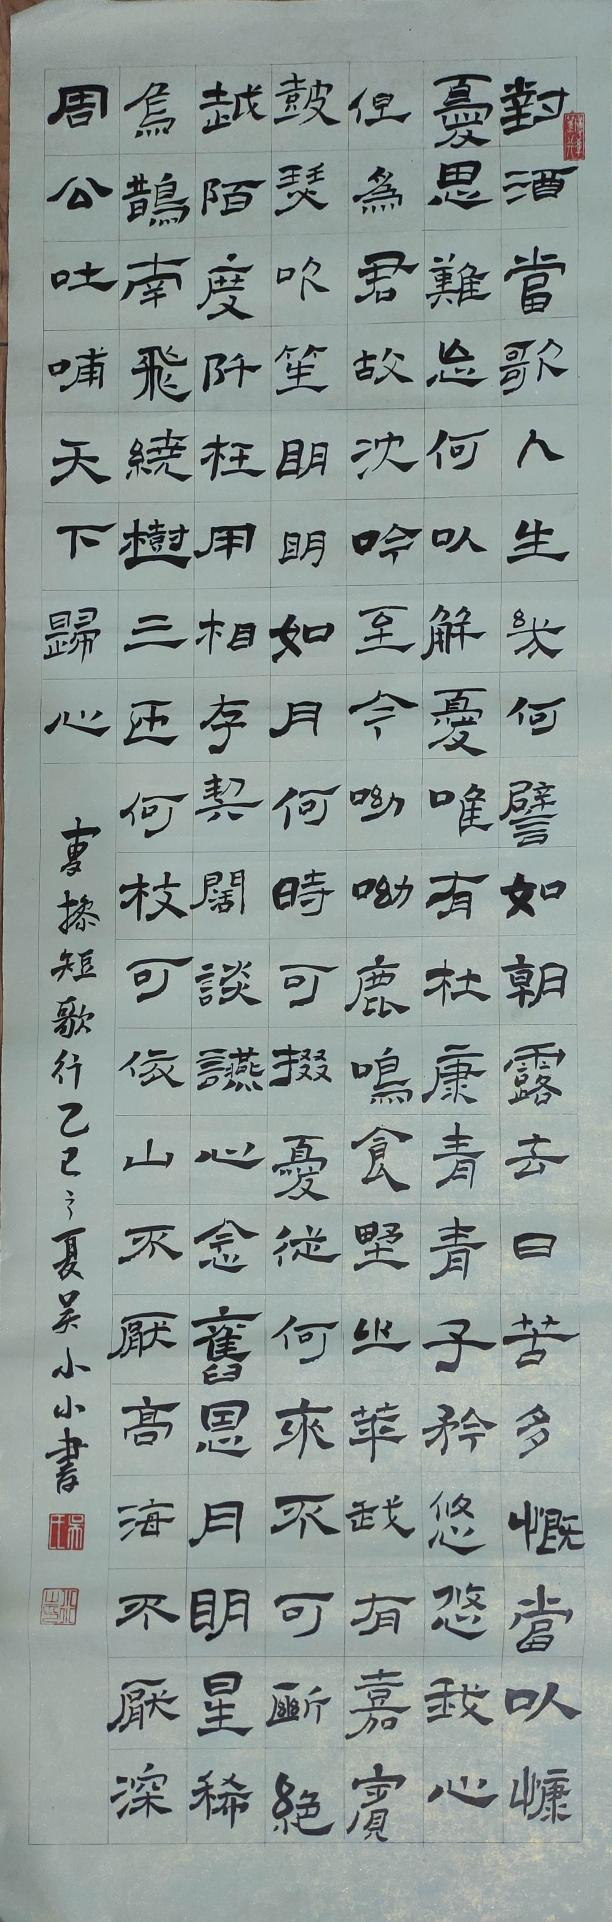 對酒當歌人生幾何譬如朝露去日苦多慨當以慷
憂思難忘何以解憂唯有杜康青青子衿悠悠我心
但為君故沈吟至今呦呦鹿鳴食野之苹我有嘉賓
鼓瑟吹笙明明如月何時可掇憂從何來不可斷絕
越陌度阡枉用相存契闊談讌心念舊恩月明星稀
烏鵲南飛繞樹三匝何枝可依山不厭高海不厭深
周公吐哺天下歸心
曹操短歌行乙巳之夏吴小小書